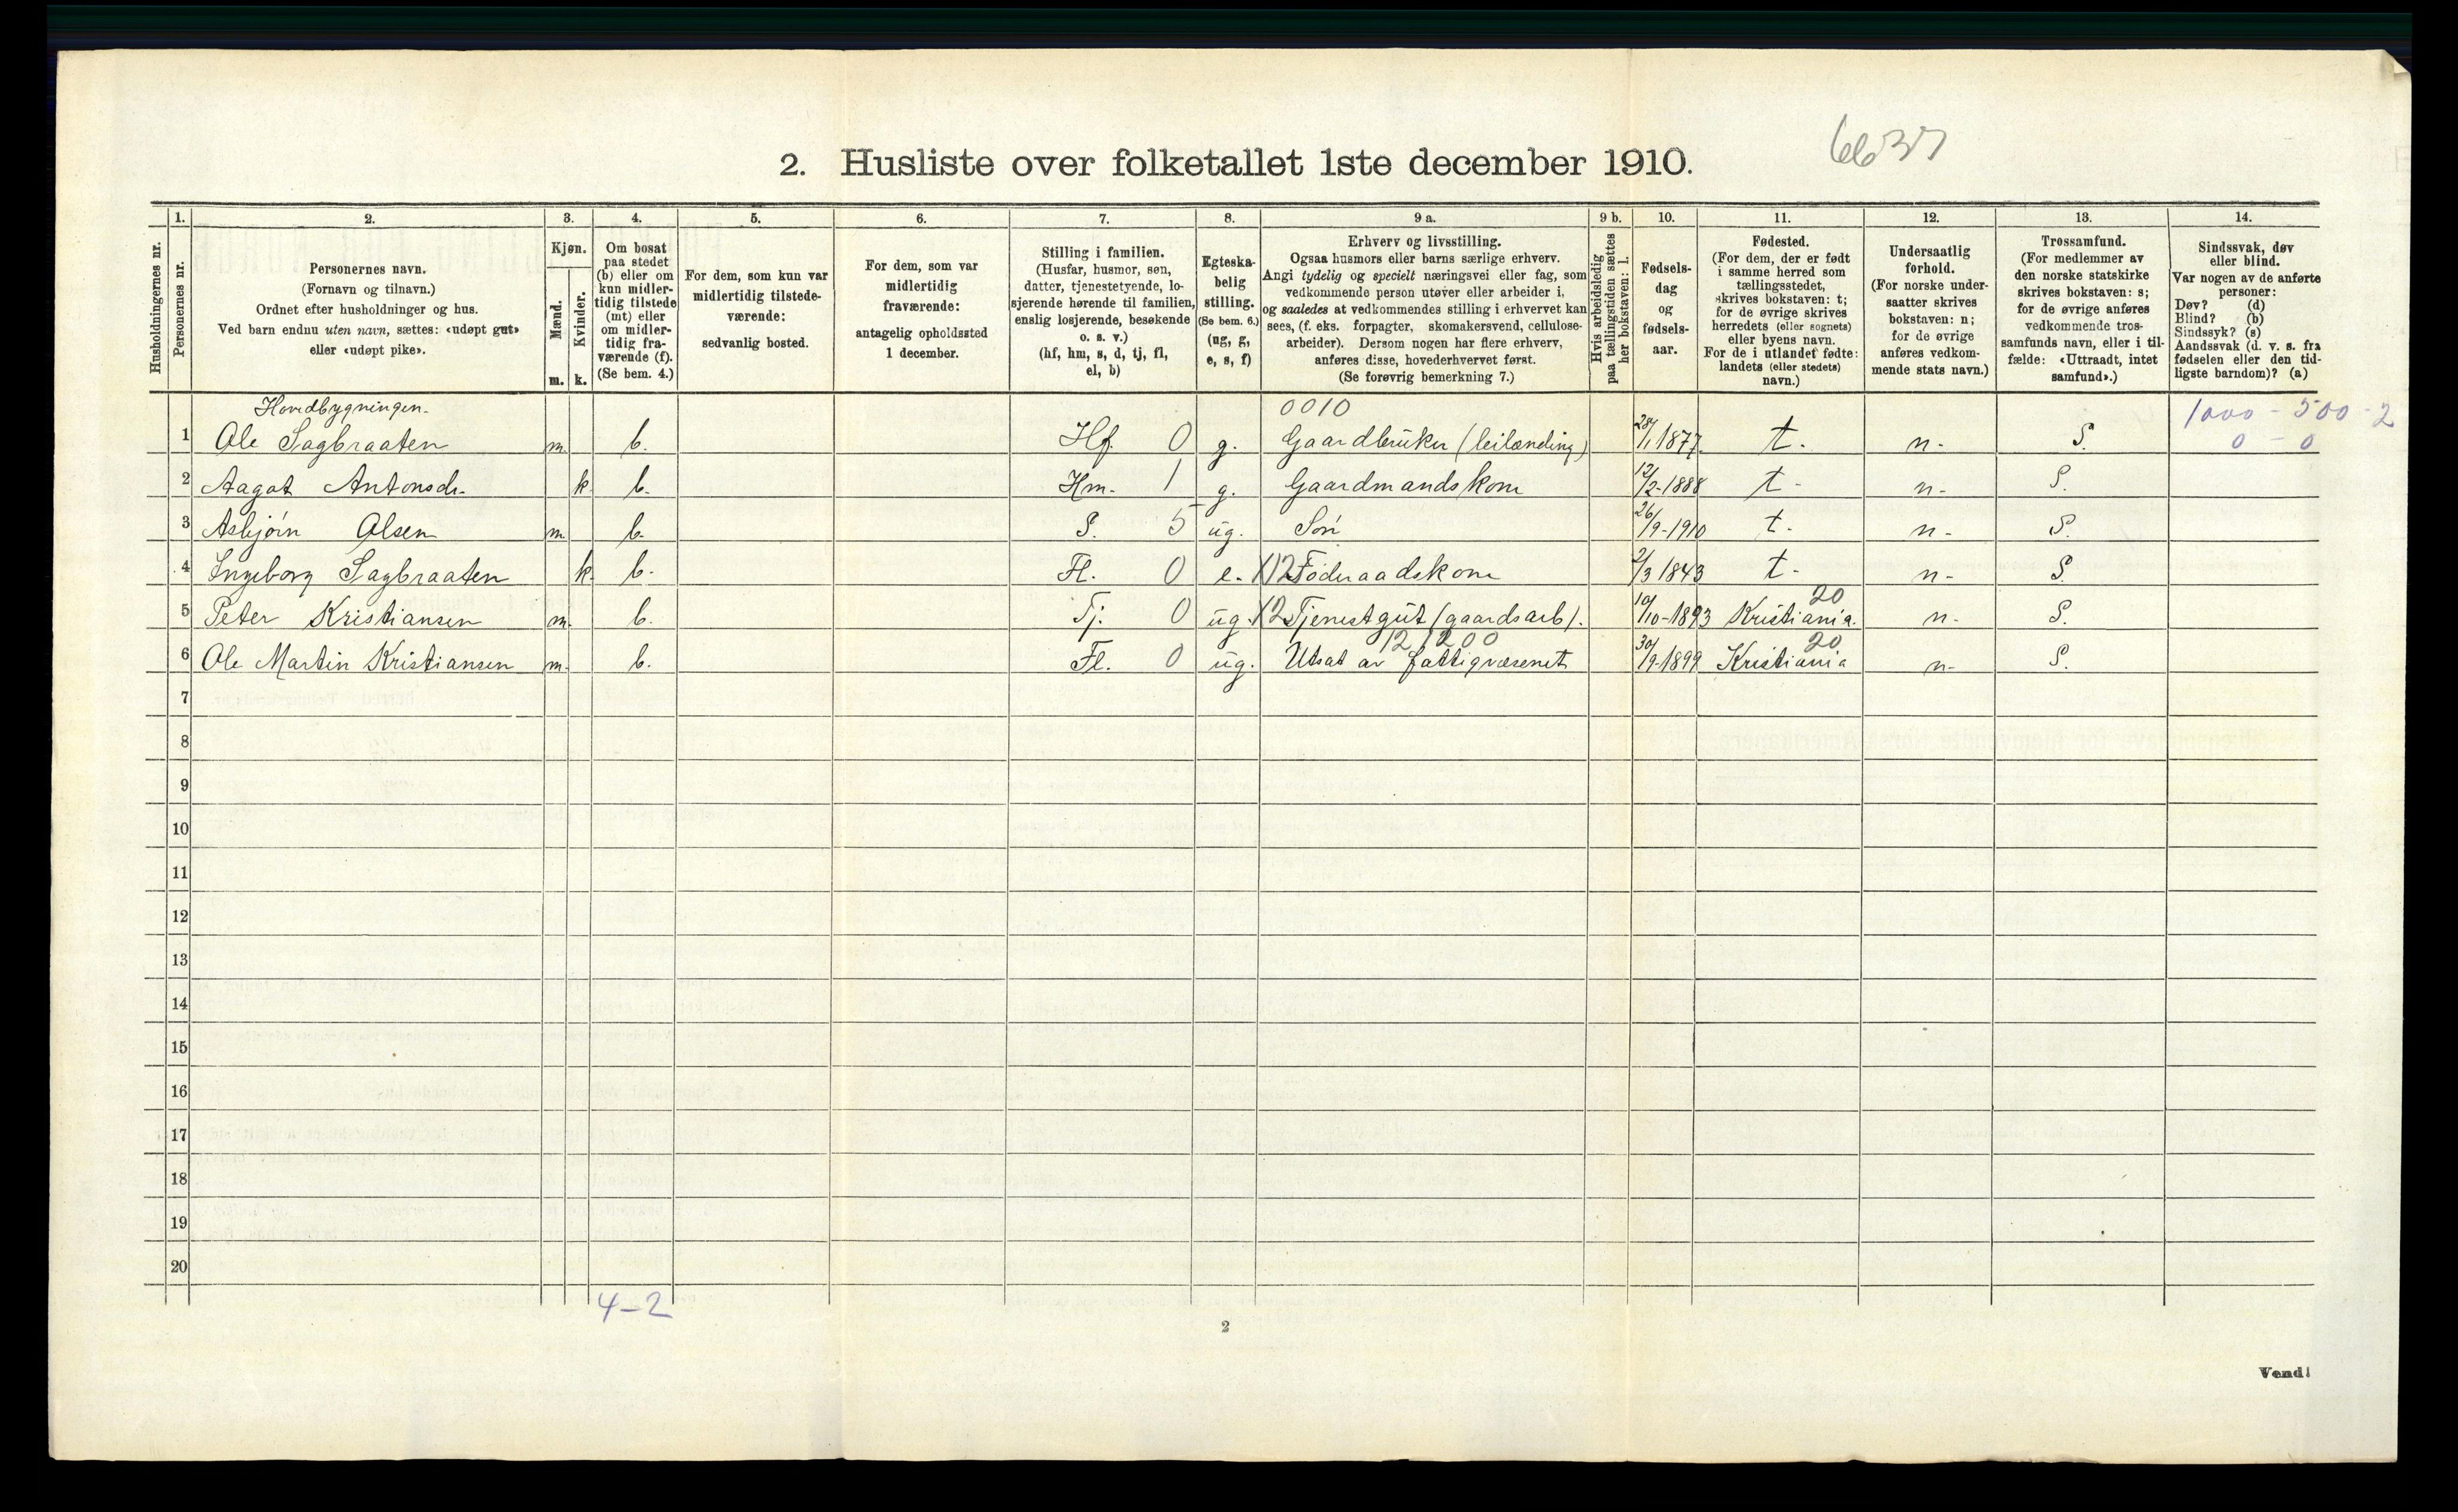 6637
2. Husliste over folketallet 1ste december 1910.
Husholdningernes nr.
1.
Personernes nr.
2.
Personernes navn.
(Fornavn og tilnavn.)
Ordnet efter husholdninger og hus.
Ved barn endnu uten navn, sættes: «udøpt gut»
eller «udøpt pike».
3.
Kjøn.
Mænd.
m.
Kvinder.
k.
4.
Om bosat
paa stedet
(b) eller om
kun midler-
tidig tilstede
(mt) eller
om midler-
tidig fra-
værende (f).
(Se bem. 4.)
5.
For dem, som kun var
midlertidig tilstede-
værende:
sedvanlig bosted.
6.
For dem, som var
midlertidig
fraværende:
antagelig opholdssted
1 december.
7.
Stilling i familien.
(Husfar, husmor, søn,
datter, tjenestetyende, lo-
sjerende hørende til familien,
enslig losjerende, besøkende
o. s. v.)
(hf, hm, s, d, tj, fl,
el, b)
8.
Egteska-
belig
stilling.
(Se bem. 6.)
(ug, g,
e, s, f)
9 a.
Erhverv og livsstilling.
Ogsaa husmors eller barns særlige erhverv.
Angi tydelig og specielt næringsvei eller fag, som
vedkommende person utøver eller arbeider i,
og saaledes at vedkommendes stilling i erhvervet kan
sees, (f. eks. forpagter, skomakersvend, cellulose-
arbeider). Dersom nogen har flere erhverv,
anføres disse, hovederhvervet først.
(Se forøvrig bemerkning 7.)
9 b.
Hvis arbeidsledig
paa tællingstiden sættes
her bokstaven: l.
10.
Fødsels-
dag
og
fødsels-
aar.
11.
Fødested.
(For dem, der er født
i samme herred som
tællingsstedet,
skrives bokstaven: t;
for de øvrige skrives
herredets (eller sognets)
eller byens navn.
For de i utlandet fødte:
landets (eller stedets)
navn.)
12.
Undersaatlig
forhold.
(For norske under-
saatter skrives
bokstaven: n;
for de øvrige
anføres vedkom-
mende stats navn.)
13.
Trossamfund.
(For medlemmer av
den norske statskirke
skrives bokstaven: s;
for de øvrige anføres
vedkommende tros-
samfunds navn, eller i til-
fælde: «Uttraadt, intet
samfund».)
14.
Sindssvak, døv
eller blind.
Var nogen av de anførte
personer:
Døv? (d)
Blind? (b)
Sindssyk? (s)
Aandssvak (d. v. s. fra
fødselen eller den tid-
ligste barndom)? (a)
Hovedbygningen. 0010 1000 - 500 - 2
1 Ole Sagbraaten m. b. Hf. 0 g. Gaardbruker (leilænding) 28/1 1877 t. n. S. 0 - 0
2 Aagot Antonsdr. k. b. Hm. 1 g. Gaardmandskone 12/2-1888 t. n. S.
3 Asbjørn Olsen m. b. S. 5 ug. Søn 26/9-1910 t. n. S.
4 Ingeborg Sagbraaten k. b. Fl. 0 e. X12 Føderaadskone 2/3 1843 t. n. S.
20
5 Peter Kristiansen m. b. Tj. 0 ug. X2 Tjenestgut (gaardsarb). 10/10-1893 Kristiania. n. S.
12 1200 20
6 Ole Martin Kristiansen m. b. Fl. 0 ug. Utsat av fattigvæsenet 30/9-1899 Kristiania n. S.
7
8
9
10
11
12
13
14
15
16
17
18
19
20
4-2
2
Vend!